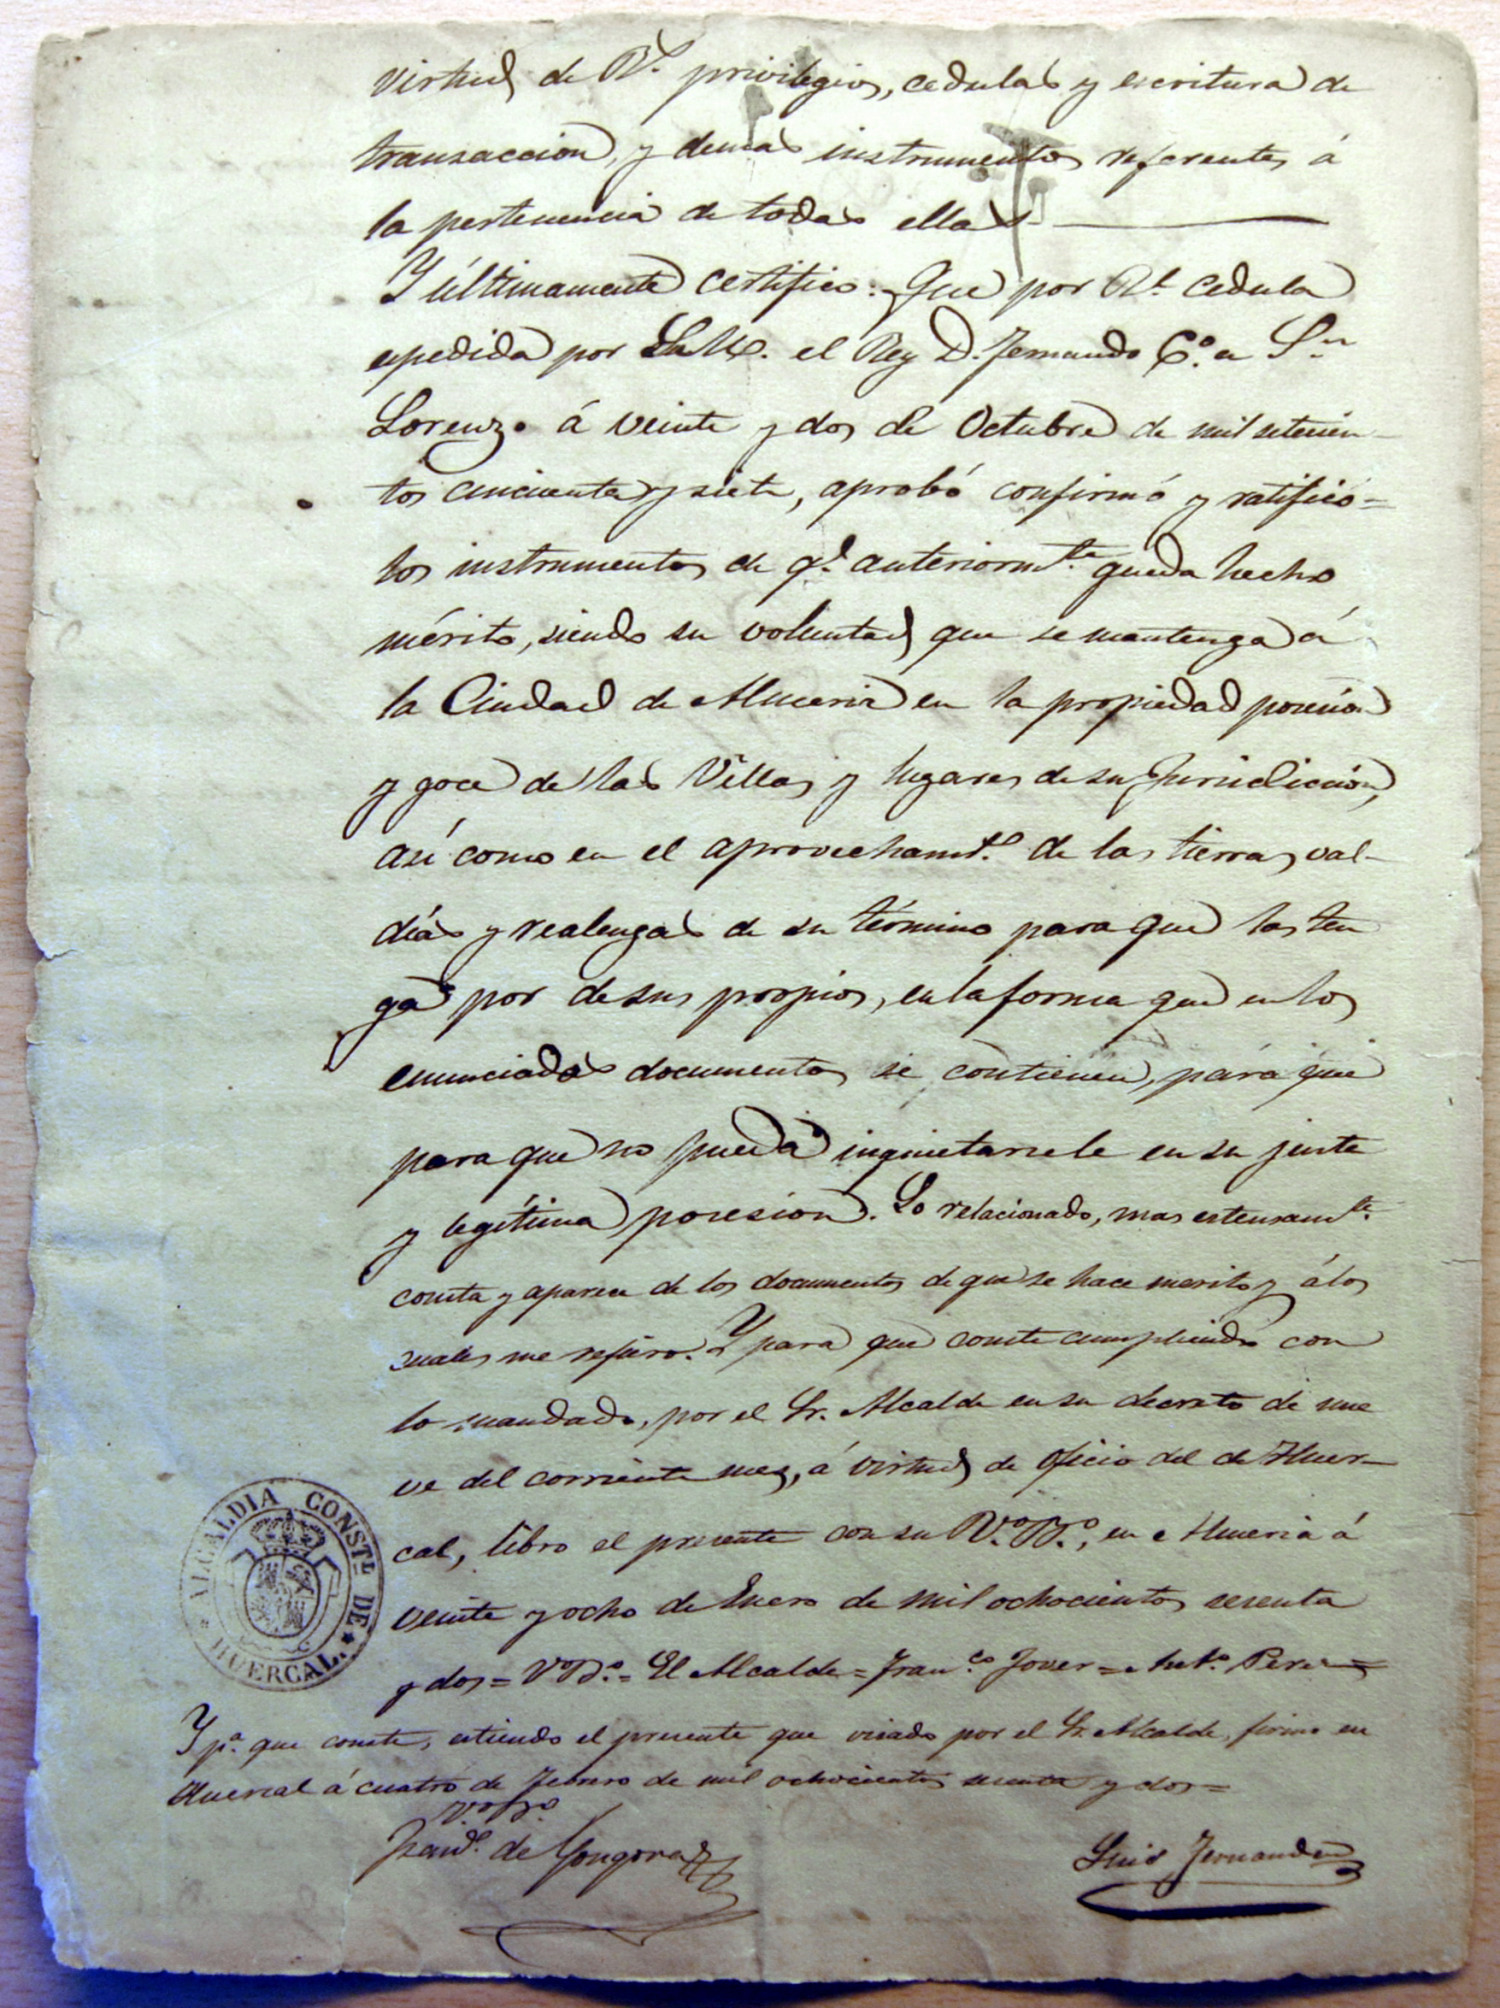 virtud de Rˢ. privilegios, cedulas y escritura de
transaccion, y demas instrumentos referentes á
la pertenencia de todas ellas.
Y últimamente certifico: Que por Rˡ. cedula
espedida por S. M. el Rey D. Fernando 6º. en Sⁿ
Lorenzo á veinte y dos de Octubre de mil setecien-
tos cincuenta y siete, aprobó confirmó y ratificó=
los instrumentos de qᵉ. anteriormᵗᵉ. queda hecho
mérito, siendo su voluntad que se mantenga á
la Ciudad de Almeria en la propiedad posesion
y goce de las Villas y lugares de su Jurisdiccion,
así como en el aprovechamᵗº. de las tierras val-
días y realengas de su término para que las ten
ga por de sus propios, en la forma que en los
enunciados documentos se contienen, para que
para que no pueda inquietarsele en su justa
y legítima posesion. Lo relacionado, mas estensamᵗᵉ.
consta y aparece de los documentos de que se hace merito y á los
cuales me refiero. Y para que conste cumpliendo con
lo mandado, por el Sr. Alcalde en su decreto de nue
ve del corriente mes, á virtud de oficio del de Huer-
cal, libro el presente con su Vº. Bº., en Almeria á
veinte y ocho de Enero de mil ochocientos sesenta
y dos = Vº Bº. = El Alcalde = Franᶜº. Jover = Antº. Perez =
Y pª. que conste, estiendo el presente que visado por el Sr. Alcalde, firmo en
Huercal á cuatro de Febrero de mil ochocientos sesenta y dos =
Vº Bº.
de Gongora
Luis Fernandez
ALCALDIA CONSTᴸ DE
HUERCAL.